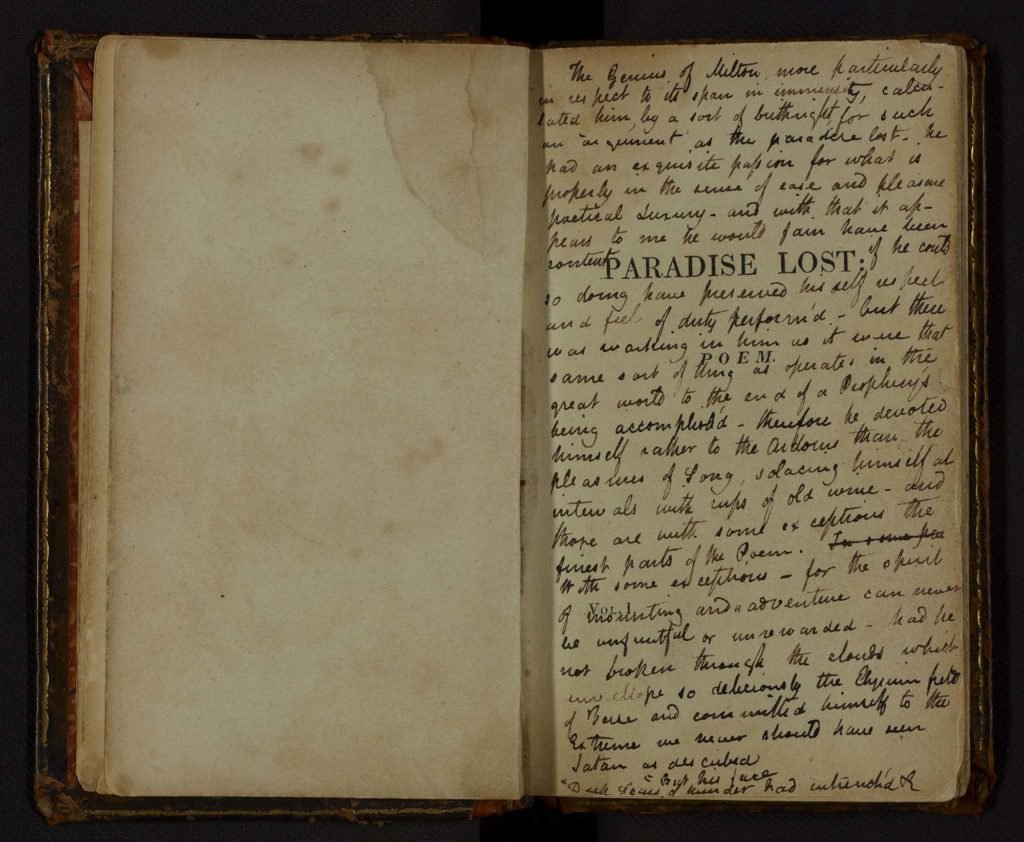 The Genius of Milton, more particularly
in respect to its span in immensity, calcu-
lated him, by a sort of birthright, for such
an 'argument' as the paradise lost - he
had an exquisite passion for what is
properly in the sense of ease and pleasure
poetical Luxury - and with that it ap-
pears to me he would fain have been
content if he could
PARADISE LOST:
so doing have preserved his self respect
and feel of duty perform'd - but there
was working in him as it were that
same sort of thing as operates in the
POEM.
great world to the end of a Prophecy's
being accomplish'd - therefore he devoted
himself rather to the Ardours than the
pleasures of Song, solacing himself at
intervals with cups of old wine - and
those are with some exceptions the
finest parts of the Poem. In some
With some exceptions - for the spirit
of mounting and adventure can never
VOL. I.
be unfruitful or unrewarded - had he
not broken through the clouds which
envellope so deliciously the Elysium field
of Verse and committed himself to the
Extreme we never should have seen
Satan as described
"But his face
"Deep Scars of thunder had intrench'd &